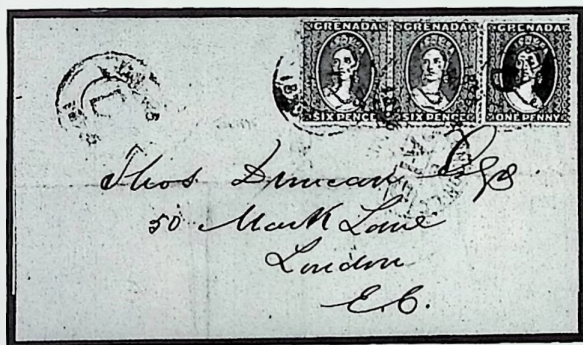 GRENADA GRENADA GRENADA
SIX PENCE SIX PENCE ONE PENNY
Thos Duncan Esqr
50 Mark Lane
London
E.C.